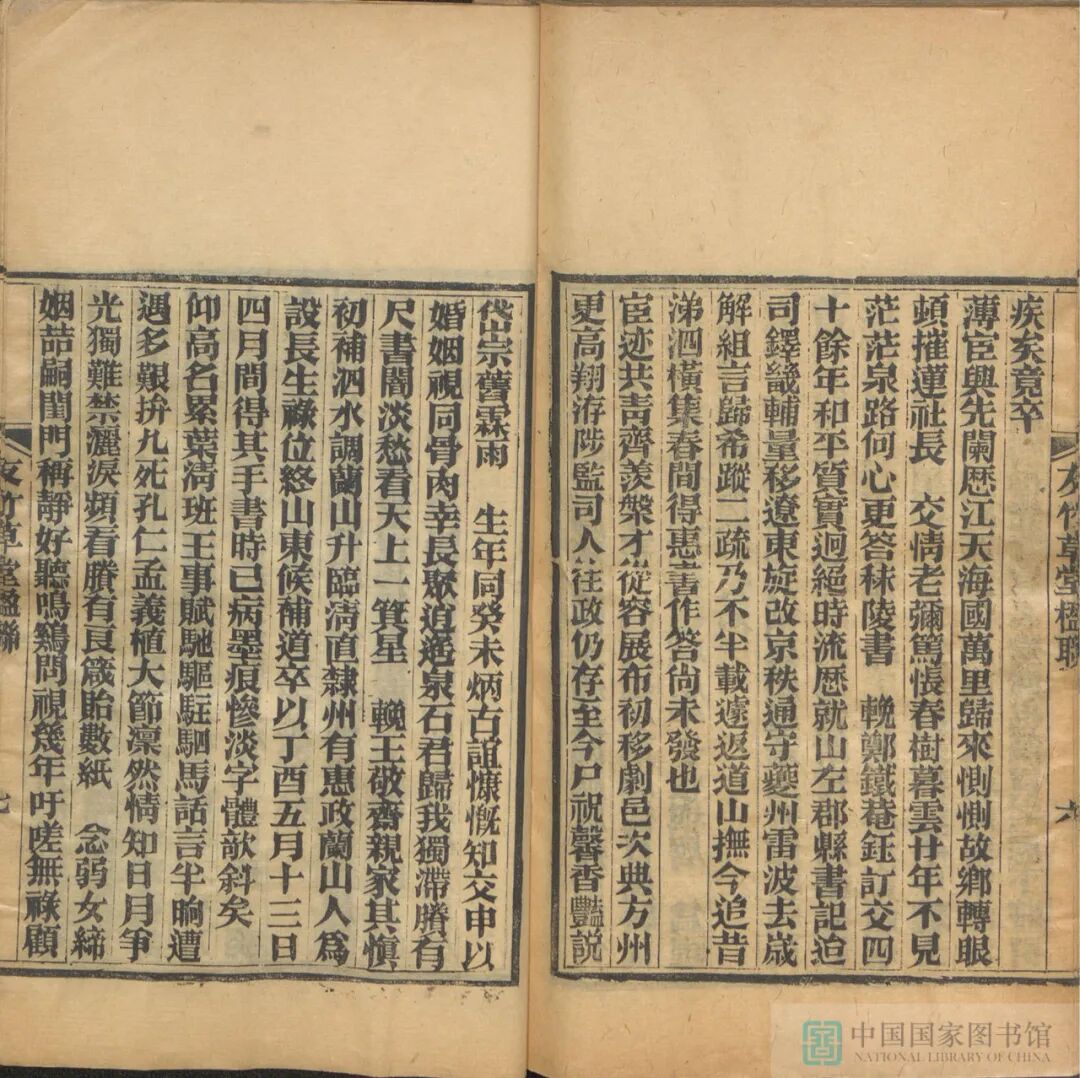 疾矣竟卒
薄宦與先蘭歷江天海國萬里歸來惻惻故鄉轉眼
頓摧蓮社長　交情老彌篤悵春樹暮雲廿年不見
茫茫泉路何心更答秣陵書　輓鄭鐵菴鈺訂交四
十餘年和平質實迥絕時流歷就山左郡縣書記迨
司鐸畿輔量移遼東旋改京秩通守夔州雷波去歲
解組言歸希蹤二疏乃不半載遽返道山撫今追昔
涕泗橫集春間得惠書作答尚未發也
宦迹共青齊羨槃才從容展布初移劇邑次典方州
更高翔洊陟監司人往政仍存至今尸祝馨香豔說
友竹草堂楹聯
六
岱宗舊霖雨　生年同癸未炳古誼慷慨知交申以
婚姻視同骨肉幸長聚逍遙泉石君歸我獨滯賸有
尺書闇淡愁看天上一箕星　輓王敬齋親家其慎
初補泗水調蘭山升臨清直隸州有惠政蘭山人為
設長生祿位終山東候補道卒以丁酉五月十三日
四月間得其手書時已病墨痕慘淡字體欹斜矣
仰高名累葉清班王事賦馳驅駐駟馬話言半晌遭
遇多艱拚九死孔仁孟義植大節凜然情知日月爭
光獨難禁灑淚頻看賸有良箴貽數紙　念弱女締
姻喆嗣閨門稱靜好聽鳴鷄問視幾年吁嗟無祿顧
友竹草堂楹聯
七
中国国家图书馆
NATIONAL LIBRARY OF CHINA